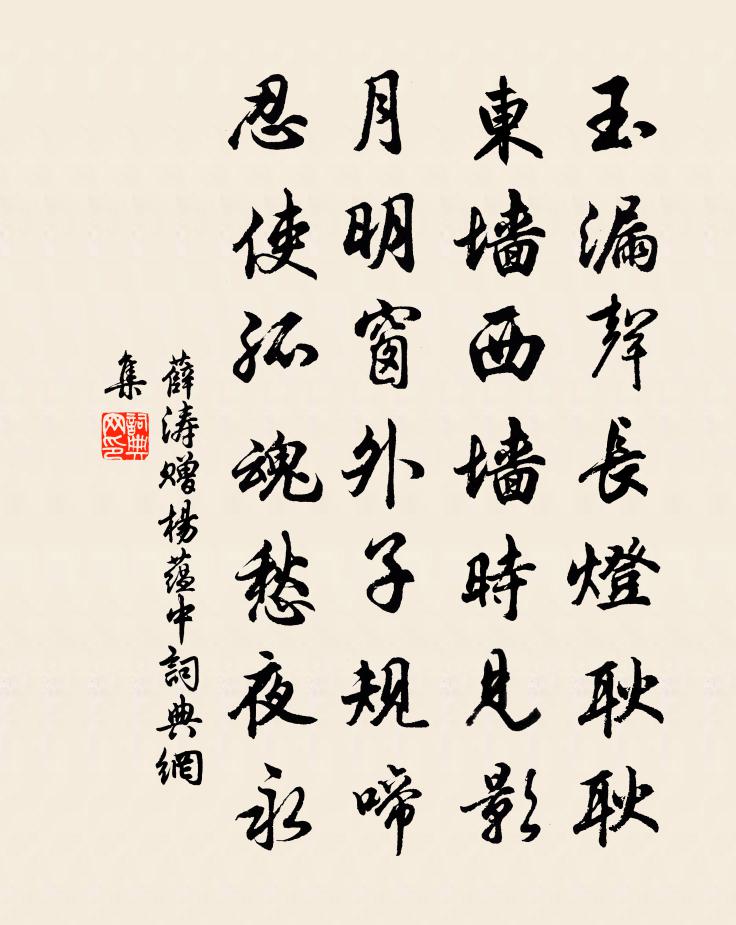 玉漏聲長燈耿耿
東墙西墙時見影
月明窗外子規啼
忍使孤魂愁夜永
薛涛赠楊蕴中詞典網
集
詞典
网印